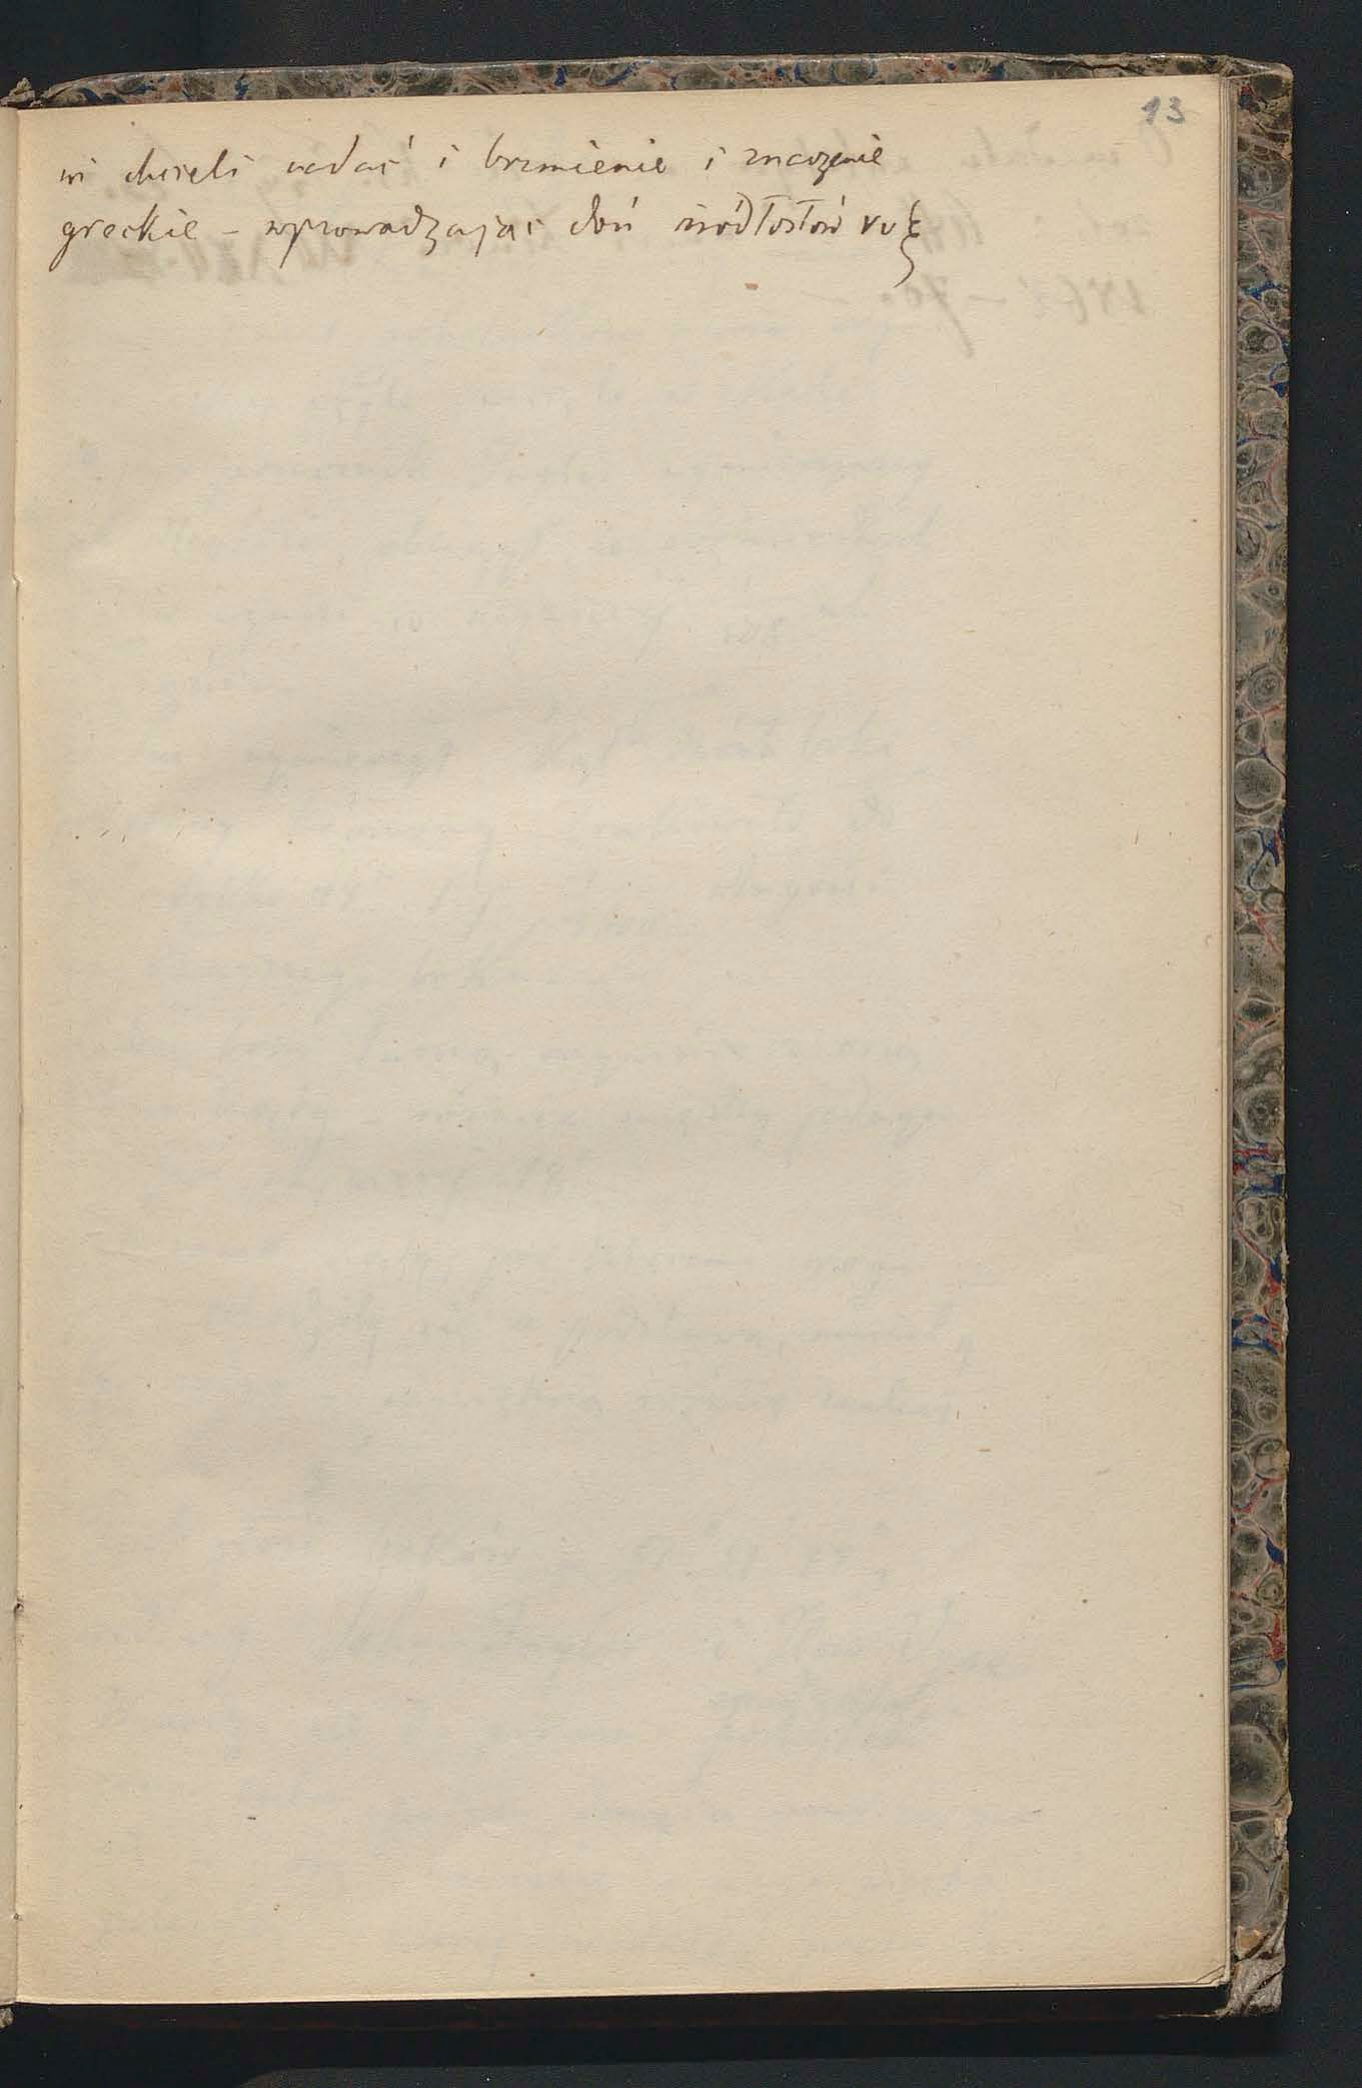 13
wi chcieli nadać i brzmienie i znaczenie
greckie – wprowadzając doń źródłosłów νυξ